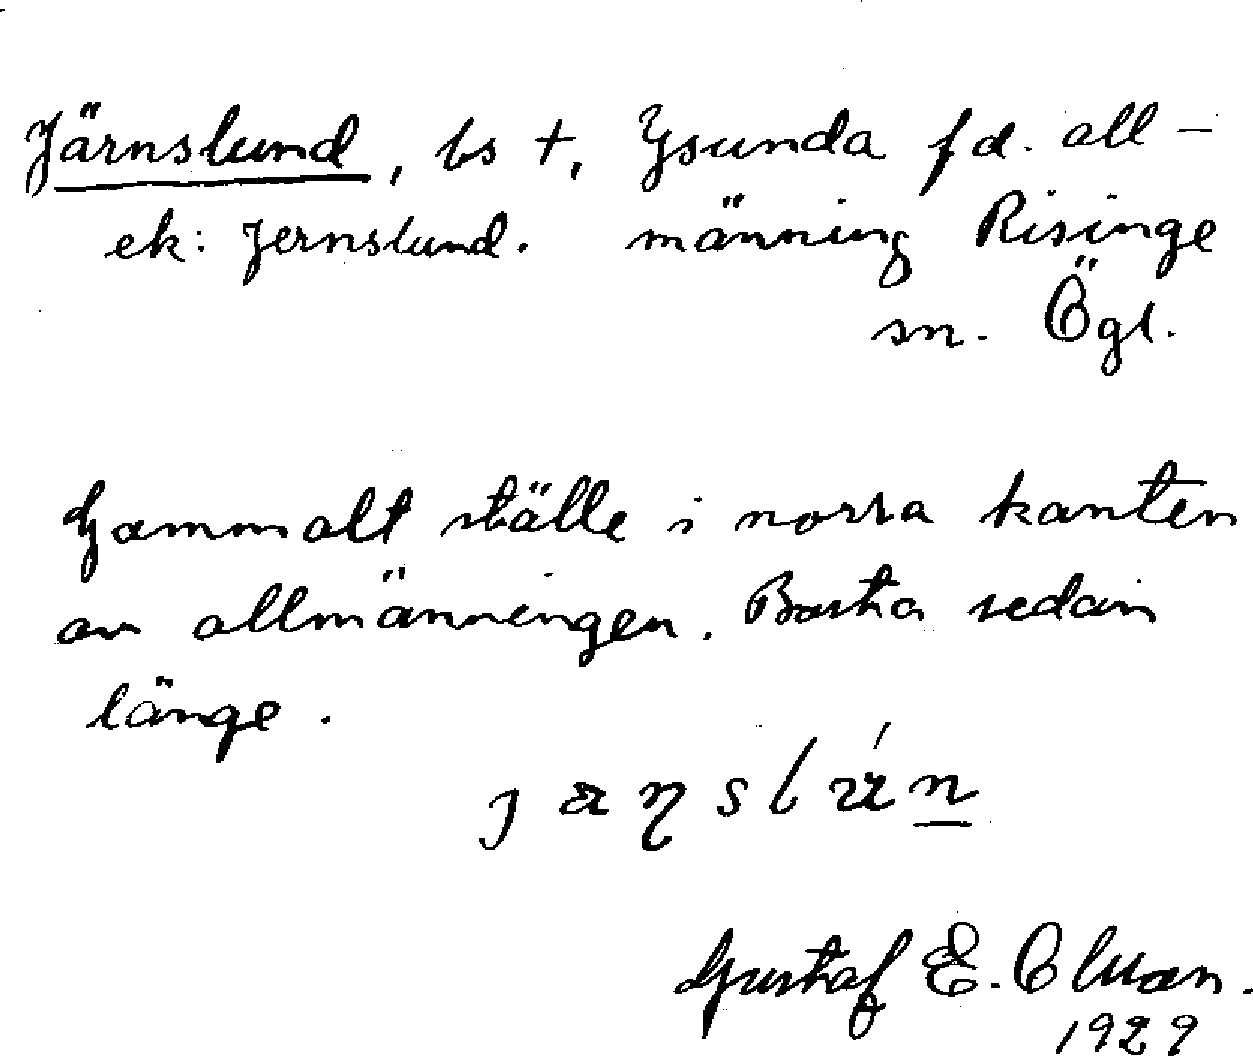 Järnslund, bs +, Ysunda fd. all-
ek: Jernslund. männing Risinge
sn. Ögl.
Gammalt ställe i norra kanten
av allmänningen. Borta sedan
länge.
Gustaf E.
1929